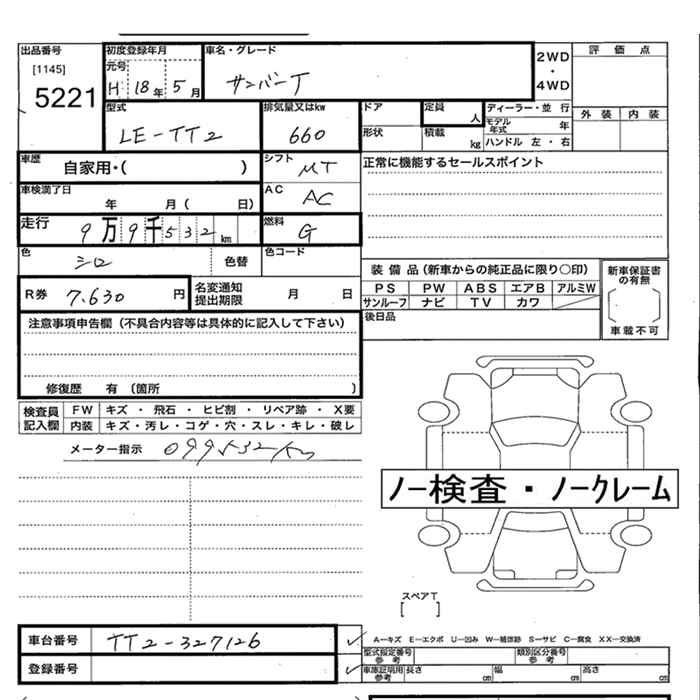 出品番号
[1145]
5221
初度登録年月
元号
H 18年 5月
車名・グレード
サンバーT
2WD
・
4WD
評価点
外装 内装
型式
LE-TT2
排気量又はkw
660
ドア
形状
定員
人
積載
kg
ディーラー・並行
モデル年式 年
ハンドル 左・右
車歴
自家用・( )
シフト
MT
正常に機能するセールスポイント
車検満了日
年 月( 日)
AC
AC
走行
9万9千532km
燃料
G
色
シロ
色替
色コード
装備品(新車からの純正品に限り〇印)
PS PW ABS エアB アルミW
サンルーフ ナビ TV カワ
新車保証書の有無
車載不可
R券 7,630円
名変通知
提出期限
月 日
後日品
注意事項申告欄(不具合内容等は具体的に記入して下さい)
修復歴 有 (箇所 )
検査員
記入欄
FW キズ・飛石・ヒビ割・リペア跡・X要
内装 キズ・汚レ・コゲ・穴・スレ・キレ・破レ
メーター指示 099532km
ノー検査・ノークレーム
スペアT
[ ]
車台番号 TT2-327126
登録番号
A―キズ E―エクボ U―凹み W―補修跡 S―サビ C―腐食 XX―交換済
型式指定番号
参考
類別区分番号
参考
車庫証明用
参考
長さ cm 幅 cm 高さ cm